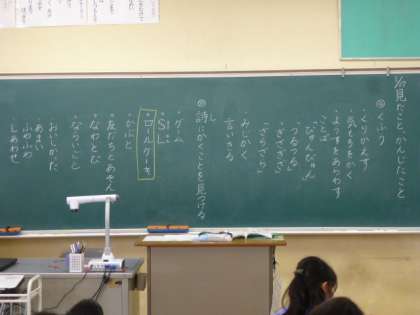 1/10 見たこと、かんじたこと
くふう
・くりかえす
・気もちをかく
・ようすをあらわす
ことば
「びゅんびゅん」
「つるつる」
「ぎざぎざ」
「ざらざら」
みじかく
言いきる
め 詩にかくことを見つける
し
・ゲーム
・SL
・ロールケーキ
・ふとん
・友だちとあそんだ
・なわとび
・ならいごと
・おいしかった
・あまい
・ふわふわ
・しあわせ